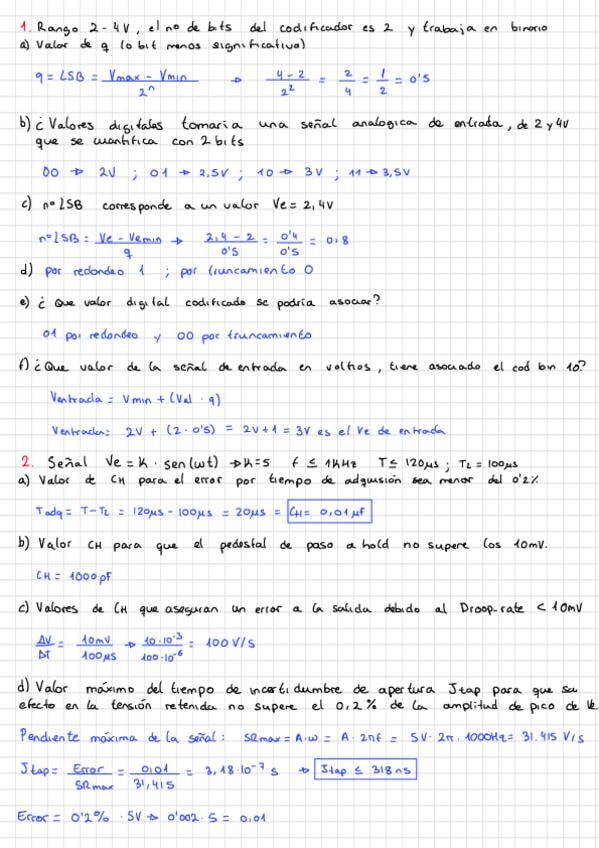 1. Rango 2 - 4V, el nº de bits del codificador es 2 y trabaja en binario
a) Valor de q (o bit menos significativo)
q = LSB = Vmax - Vmin / 2^n → 4 - 2 / 2^2 = 2/4 = 1/2 = 0'5
b) ¿Valores digitales tomaria una señal analogica de entrada, de 2 y 4V
que se cuantifica con 2 bits
00 → 2V ; 01 → 2,5V ; 10 → 3V ; 11 → 3,5V
c) nº LSB corresponde a un valor Ve = 2,4V
nº LSB = Ve - Vemin / q → 2,4 - 2 / 0'5 = 0'4 / 0'5 = 0,8
d) por redondeo 1 ; por truncamiento 0
e) ¿ Que valor digital codificado se podria asociar?
01 por redondeo y 00 por truncamiento
f) ¿Que valor de la señal de entrada en voltios, tiene asociado el cod bin 10?
Ventrada = Vmin + (Val · q)
Ventrada: 2V + (2 · 0'5) = 2V + 1 = 3V es el Ve de entrada
2. Señal Ve = K · sen(ωt) → K=5 f ≤ 1KHz T ≤ 120μs ; TL = 100μs
a) Valor de CH para el error por tiempo de adquisión sea menor del 0'2%
Tadq = T - TL = 120μs - 100μs = 20μs = CH = 0,01μf
b) Valor CH para que el pedestal de paso a hold no supere los 10mV.
CH = 1000pF
c) Valores de CH que aseguran un error a la salida debido al Droop-rate < 10mV
ΔV/ΔT = 10mV / 100μs → 10·10^-3 / 100·10^-6 = 100 V/s
d) Valor máximo del tiempo de incertidumbre de apertura Jtap para que su
efecto en la tensión retenida no supere el 0,2% de la amplitud de pico de Ve.
Pendiente máxima de la señal: SRmax = A·ω = A · 2πf = 5V · 2π · 1000Hz = 31.415 V/s
Jtap = Error / SRmax = 0,01 / 31,415 = 3,18·10^-7 s → Jtap ≤ 318ns
Error = 0'2% · 5V → 0'002 · 5 = 0,01